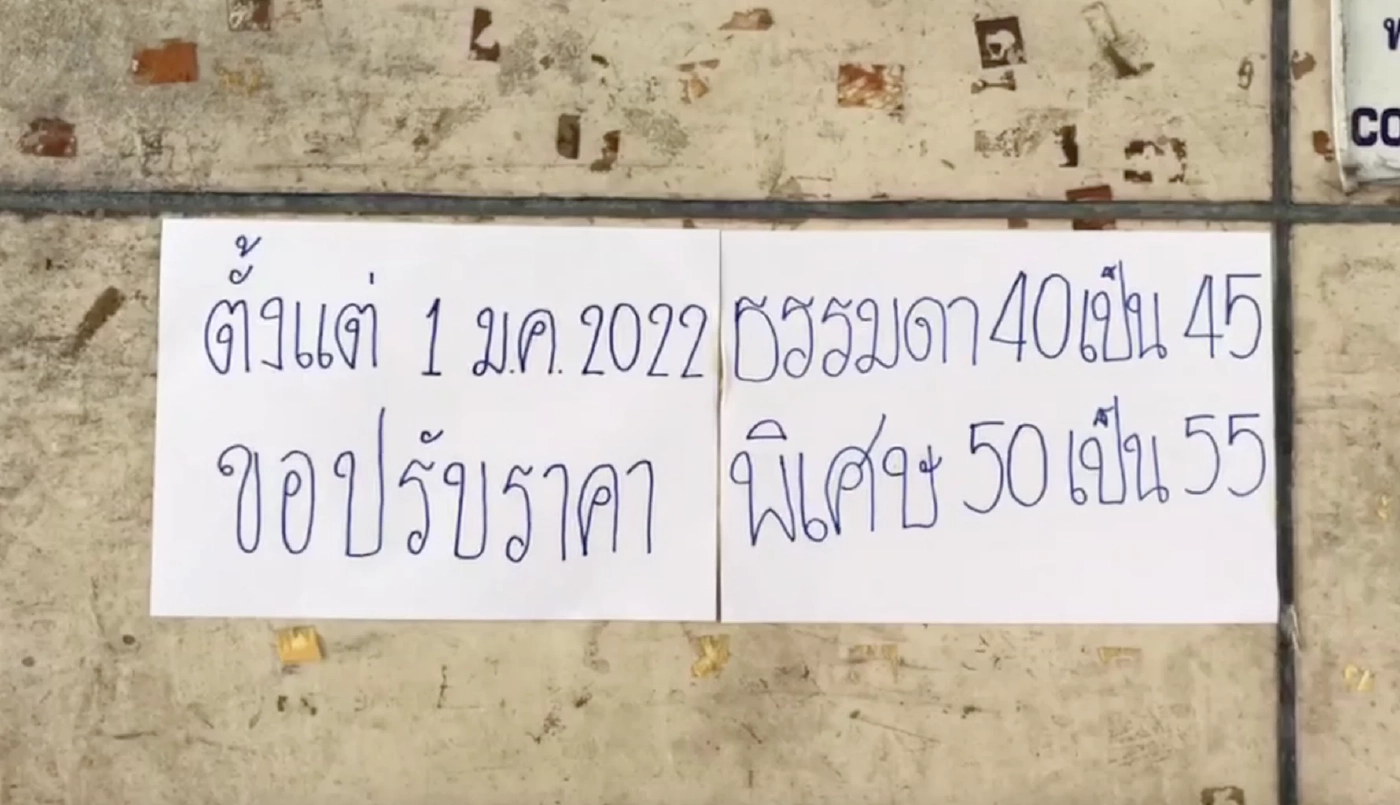 ตั้งแต่ 1 ม.ค. 2022
ขอปรับราคา
ธรรมดา 40 เป็น 45
พิเศษ 50 เป็น 55
CO